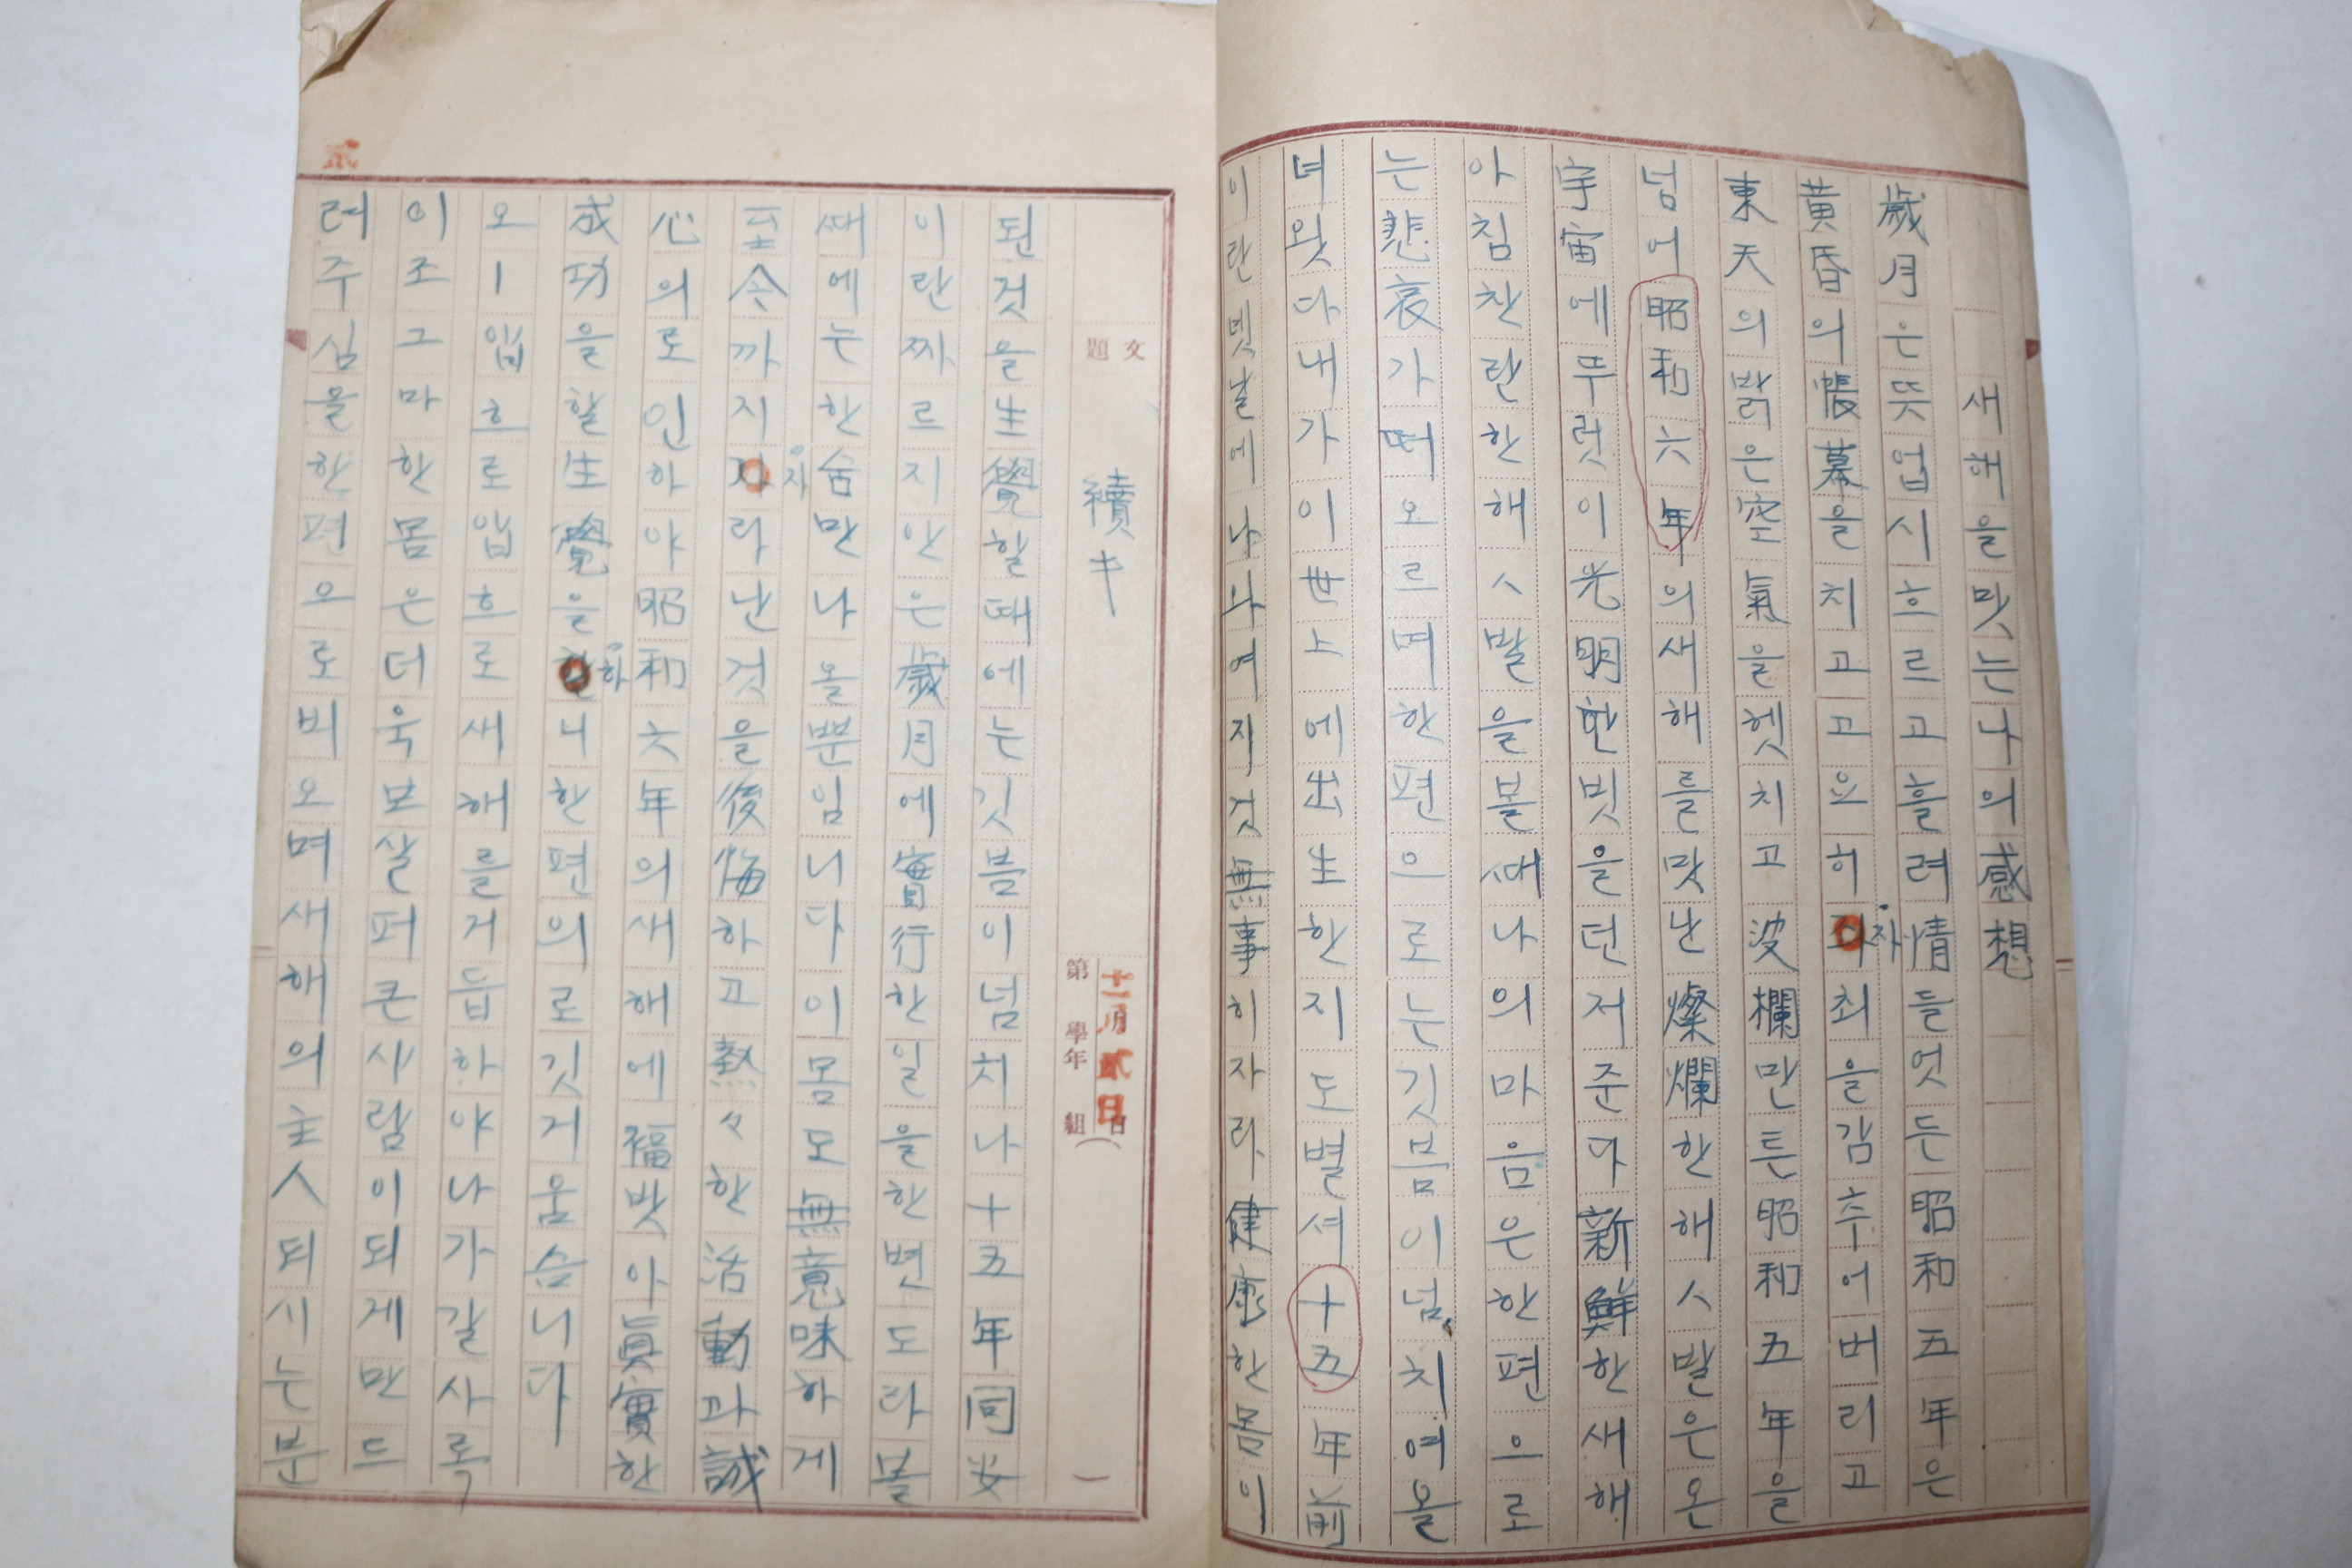 새해을맛는나의感想
歲月은뜻업시흐르고흘려情들엇든昭和五年은
黃昏의帳幕을치고고요히자최을감추어버리고
자
東天의맑은空氣을헷치고波欄만튼昭和五年을
넘어昭和六年의새해를맛난燦爛한해人발은온
宇宙에뚜렷이光明한빗을던저준다新鮮한새해
아침찬란한해人발을볼때나의마음은한편으로
는悲哀가떠오르며한편으로는깃븜이넘치여올
녀왓다내가이世上에出生한지도별셔十五年前
이란녯날에나와여지것無事히자라健康한몸이
文題
續キ
十一月貳日
第 學年 組
된것을生覺할때에는깃븜이넘처나十五年同安
이란짜르지안은歲月에實行한일을한번도다볼
때에는한숨만나올뿐임니다이몸도無意味하게
至今까지자라난것을後悔하고熱々한活動과誠
자
心의로인하야昭和六年의새해에福밧아眞實한
成功을할生覺을하니한편의로깃거움슴니다
하
오ㅣ입흐로압흐로새해를거듭하야나가갈사록
이조그마한몸은더욱보살펴큰사람이되게만드
려주심을한편으로비오며새해의主人되시는분